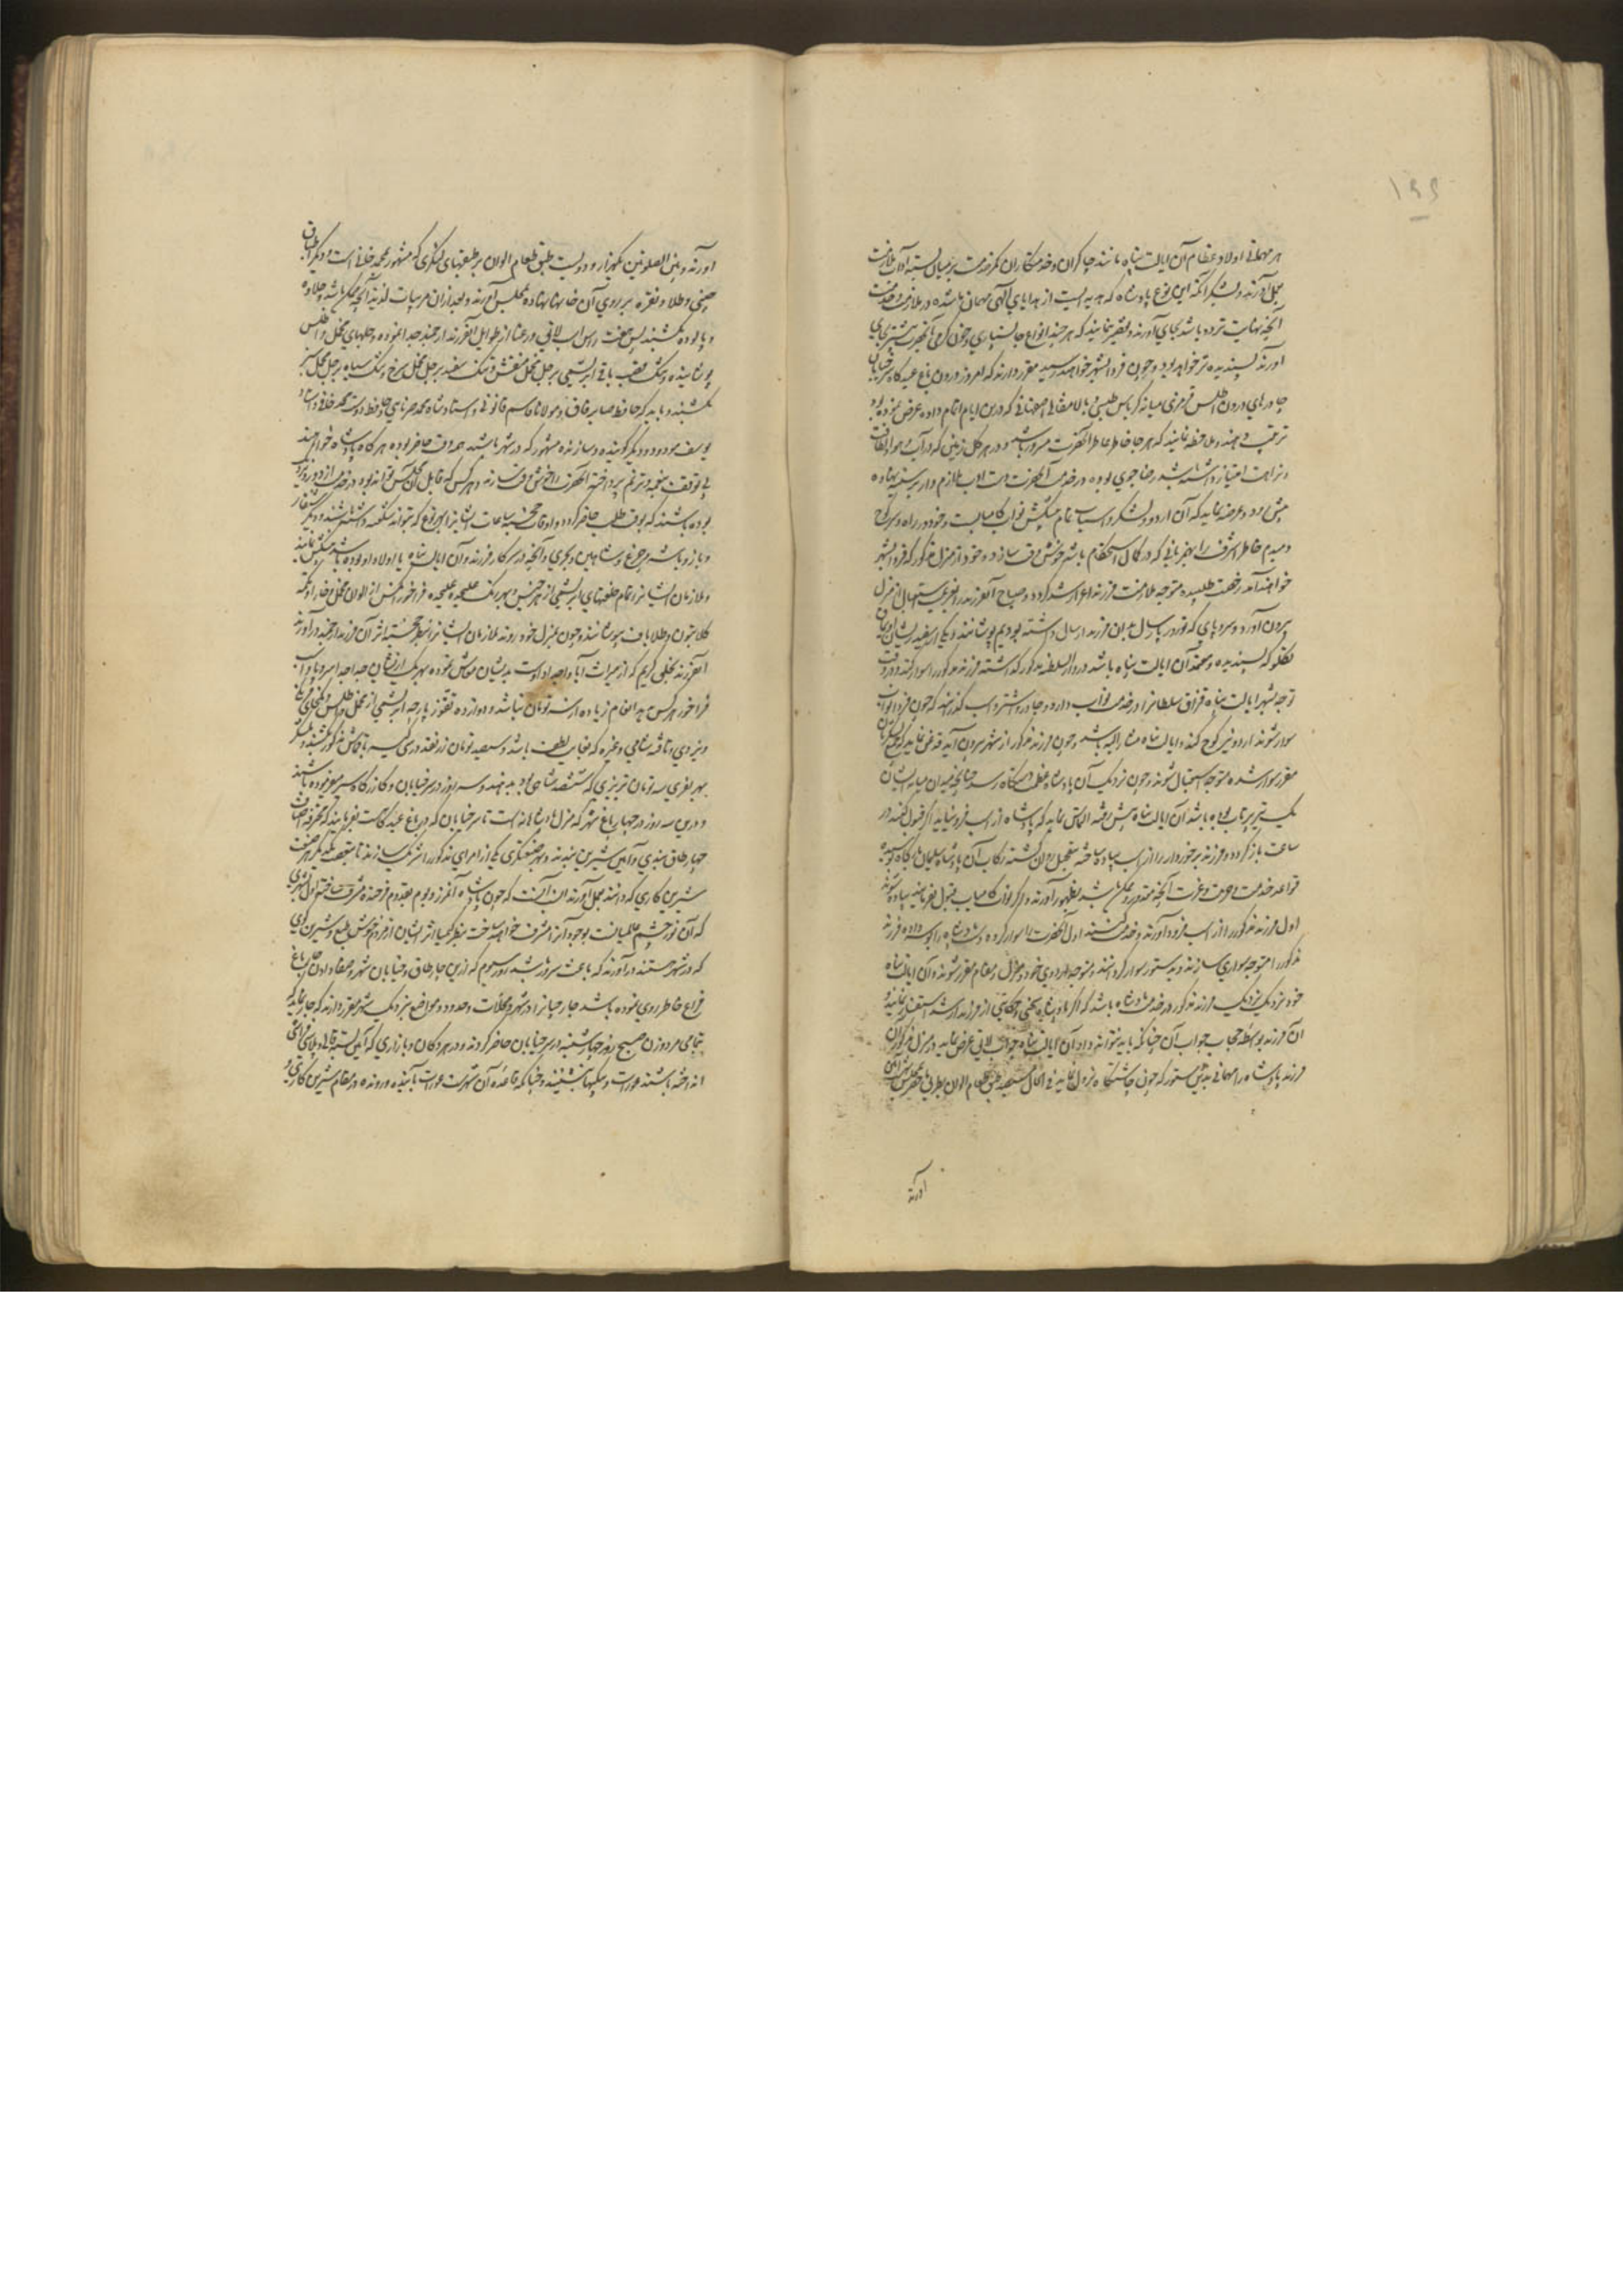 ۱۹۹
هر مهمانی اولاد عظام آن ایالت پناه مانند چاکران و خدمتکاران کمر خدمت بر میان بسته آداب ملازمت
بجای آورند و بشکرانکه این نوع پادشاه که هدیه ایست از هدایای الهی مهمان ما شده در ملازمت و خدمت
آنچه نهایت تردد باشد بجای آورند و تقصیر ننمایند که هر چند انواع جانسپاری و خون گرمی بآنحضرت بیشتر بجای
آورند پسندیده تر خواهد بود و چون فردا بشهر خواهند رسید مقرر دارند که امروز درون باغ عیدگاه سر خیابان
چادرهای درون اطلس قرمزی میانه کرباس طبسی و بالا مثقالی اصفهانی که درین ایام اتمام داده عرض نموده بود
ترتیب دهند و ملاحظه نمایند که هر جا خاطر عاطر آنحضرت مسرور باشد و در هر گل زمین که در آب و هوا و لطافت
و نزاهت امتیاز داشته باشد رضا جوی بوده در خدمت آنحضرت دست ادب ملازم وار بر سینه نهاده
پیش رود و عرضه نماید که آن اردو و لشکر و اسباب تمام پیشکش نواب کامیاب است و خود در راه و سر کوچ
دمبدم خاطر اشرف را بهر زبانی که در کمال استحکام باشد خوش وقت سازد و خود از منزل مذکور که فردا بشهر
خواهند آمد رخصت طلبیده متوجه ملازمت فرزند اعز ارشد گردد و صباح آنفرزند را بعزیمت استقبال از منزل
بیرون آورد و سروپای که نوروز پارسال بدان فرزند ارسال داشته بودیم بپوشانند و یکی از سفید ریشان اویماق
تکلو که پسندیده و معتمد آن ایالت پناه باشد در دار السلطنه مذکور گذاشته فرزند مذکور را سوار کند و در وقت
توجه بشهر ایالت پناه قزاق سلطانرا در خدمت نواب دارد و چادر و شتر و اسب گذرانند که چون فردا نواب
سوار شوند اردو نیز کوچ کند و ایالت پناه مشار الیه باشد و چون فرزند مذکور از شهر بیرون آید قدغن نماید که جمیع لشکریان
مقرر سوار شده متوجه استقبال شوند و چون نزدیک آن پادشاه عظمت دستگاه رسند چنانچه میدان میانه ایشان
یک تیر پرتاب بوده باشد آن ایالت پناه پیش رفته التماس نماید که پادشاه از اسب فرو نیاید اگر قبول کنند در
ساعت باز گردد و فرزند برخوردار را از اسب پیاده ساخته بتعجیل روان گشته رکاب آن پادشاه سلیمان بارگاه بوسیده
قواعد خدمت و حرمت و عزت آنچه مقدور و ممکن باشد بظهور آورند و اگر نواب کامیاب قبول نفرمایند و پیاده شوند
اول فرزند مذکور را از اسب فرود آورند و خدمت کنند اول آنحضرت را سوار کرده دست پادشاه را بوسه داده فرزند
مذکور را متوجه سواری سازند و بدستور سوار گردانند و متوجه اردوی خود و منزل و مقام مقرر شوند و آن ایالت پناه
خود نزدیک نزدیک فرزند مذکور در خدمت پادشاه باشد که اگر پادشاه سخنی و حکایتی از فرزند ارشد استفسار نمایند و
آن فرزند بواسطه حجاب جواب آن چنانکه باید نتواند داد آن ایالت پناه جواب لایق عرض نماید و در منزل مذکور آن
فرزند پادشاه را مهمانی بدین دستور که چون چاشتگاه نزول نماید فی الحال سیصد طبق طعام الوان بطریق ماحضر بمجلس بهشت آیین
آورند
آورند و بین الصلوتین یکهزار و دویست طبق طعام الوان بر طبقهای لنگری که مشهور بمحمد خانی است و دیگر اطباق
چینی و طلا و نقره بر روی آن خانها نهاده بمجلس آورند و بعد از آن مربیات لذیذ آنچه ممکن باشد و حلاوه
و پالوده بکشند پس هفت راس اسب لایق و رعنا از طوایل آنفرزند ارجمند جدا نموده و جلهای مخمل و اطلس
پوشانیده و تنگ قصب بافی ابریشمی بر جل مخمل منقش و تنگ سفید بر جل مخمل سرخ و تنگ سیاه بر جل مخمل سبز
بکشند و باید که حافظ صابر قاق و مولانا قاسم قانونی و استاد شاه محمد سرنایی و حافظ دوست محمد خافی و استاد
یوسف مودود و دیگر گوینده و سازنده مشهور که در شهر باشند همه وقت حاضر بوده هر گاه پادشاه خواهند
بی توقف بنغمه و ترنم پرداخته آنحضرت را خوش وقت سازند و هر کس که قابل آن مجلس تواند بود در خدمت از دور و نزدیک
بوده باشند که بوقت طلب حاضر گردد و اوقات خجسته ساعات ایشانرا بهر نوع که تواند شکفته داشته باشند و دیگر شنقار
و باز و باشه و چرغ و شاهین و بحری و آنچه در سرکار فرزند و آن ایالت پناه یا اولاد او بوده باشد پیشکش نمایند
و ملازمان ایشانرا تمام خلعتهای ابریشمی از هر جنس و بهر رنگ علیحده علیحده فراخور هر کس از الوان مخمل و خارا و تکمه
کلابتون و طلا باف بپوشانند و چون بمنزل خود روند ملازمان ایشانرا بنظر خجسته اثر آن فرزند ارجمند در آورند
آنفرزند بخلق کریم که از میراث آبا و اجداد اوست بدیشان معاش نموده بهر یک از ایشان جدا جدا سروپا و اسب
فراخور هر کس بدهد انعام زیاده از سه تومان نباشد و دوازده تقوز پارچه ابریشمی از مخمل و اطلس و کمخای فرنگی
و یزدی و تافته شامی و غیره که بغایت لطیف باشد و سیصد تومان زر نقد در سی کیسه با قماش مذکور بکشند و لشکر
بهر نفری سه تومان تبریزی که ششصد شاهی بود بدهند و سه روز در سر خیابان و کازرگاه سیر میفرموده باشند
و درین سه روز در چهار باغ شهر که منزل پادشاهانه است تا سر خیابان که در باغ عیدگاه است بفرمایند که محترفه اصناف
چهار طاق بندی و آیین شیرین ببندند و بهر صنعتگری یکی از امرای مذکور را شریک سازند تا بتعصب یکدیگر هر صنعت
شیرین کاری که دانند بعمل آورند انسب آنست که چون پادشاه آنفرزند بوم بقدوم فرخنده مشرف ساخته اول شهری
که آن نور چشم عالمیانست بوجود آن مشرف خواهد ساخت بنظر کیمیا اثر ایشان از مردم خوش طبع و شیرین گوی
که در شهر هستند در آورند که باعث سرور باشد روز سیوم که از بین چار طاق و خیابان شهر و صفا دادن چهار باغ
فراغ خاطر روی نموده باشد جارچیانرا در شهر و محلات و حدود و مواضع نزدیک شهر مقرر دارند که جار نمایند که
تمامی مرد و زن صبح روز چهارشنبه در سر خیابان حاضر گردند و در هر دکان و بازاری که آیین بسته قالی و پلاس فراش
انداخته باشند عورات و بیگها بنشینند و چنانکه قاعده آن شهرست عورات با آینده و رونده در مقام شیرین کاری و